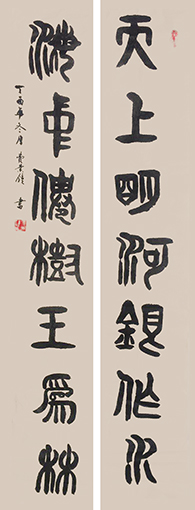 天上明河銀作水
海中僊樹玉為林
丁酉年冬月 書